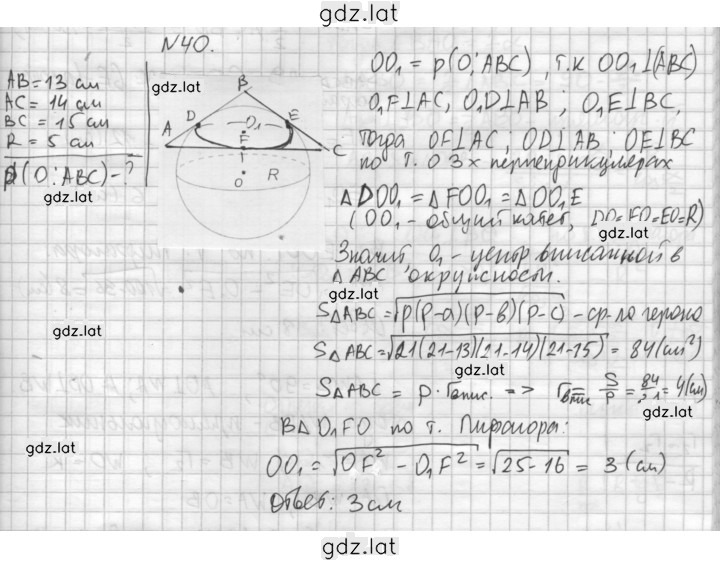 gdz.lat
N40.
AB = 13 см
AC = 14 см
BC = 15 см
R = 5 см
ρ(O; ABC) - ?
gdz.lat
gdz.lat
B
D
O₁
E
A
F
C
O
R
OO₁ = ρ(O; ABC), т.к OO₁⊥(ABC)
O₁F⊥AC, O₁D⊥AB; O₁E⊥BC,
gdz.lat
тогда OF⊥AC, OD⊥AB; OE⊥BC
по т. о 3х перпендикулярах
△DOO₁ = △FOO₁ = △OO₁E
(OO₁ - общий катет, DO=FO=EO=R)
gdz.lat
Значит, O₁ - центр вписанной в
△ABC окружности.
gdz.lat
S△ABC = √p(p-a)(p-в)(p-c) - ф-ла герона
gdz.lat
S△ABC = √21(21-13)(21-14)(21-15) = 84 (см²)
gdz.lat
S△ABC = p · rвпис. => rвпис = S/p = 84/21 = 4 (см)
gdz.lat
В△O₁FO по т. Пифагора:
gdz.lat
OO₁ = √OF² - O₁F² = √25-16 = 3 (см)
gdz.lat
Ответ: 3 см
gdz.lat